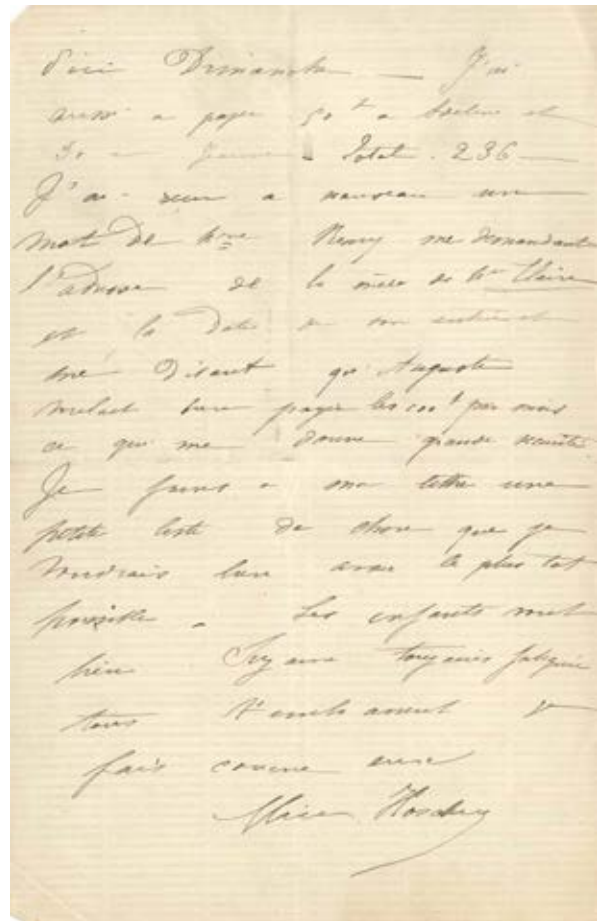 d'ici Dimanche — J'ai
aussi a payer 50 f a et
30 a Total . 236 —
J'ai reçu a nouveau un
mot de Mme Remy me demandant
l'adresse de la mère de Mme Claire
et la date de son et
me disant qu'Auguste
bien payer les 100 f par mois
ce qui me donne grande
Je joins a ma lettre une
petite liste de chose que je
voudrais bien avoir le plus tot
possible . Les enfants vont
bien toujours fatiguée
tous t'embrassent je
fais comme eux
Alice Hoschedé